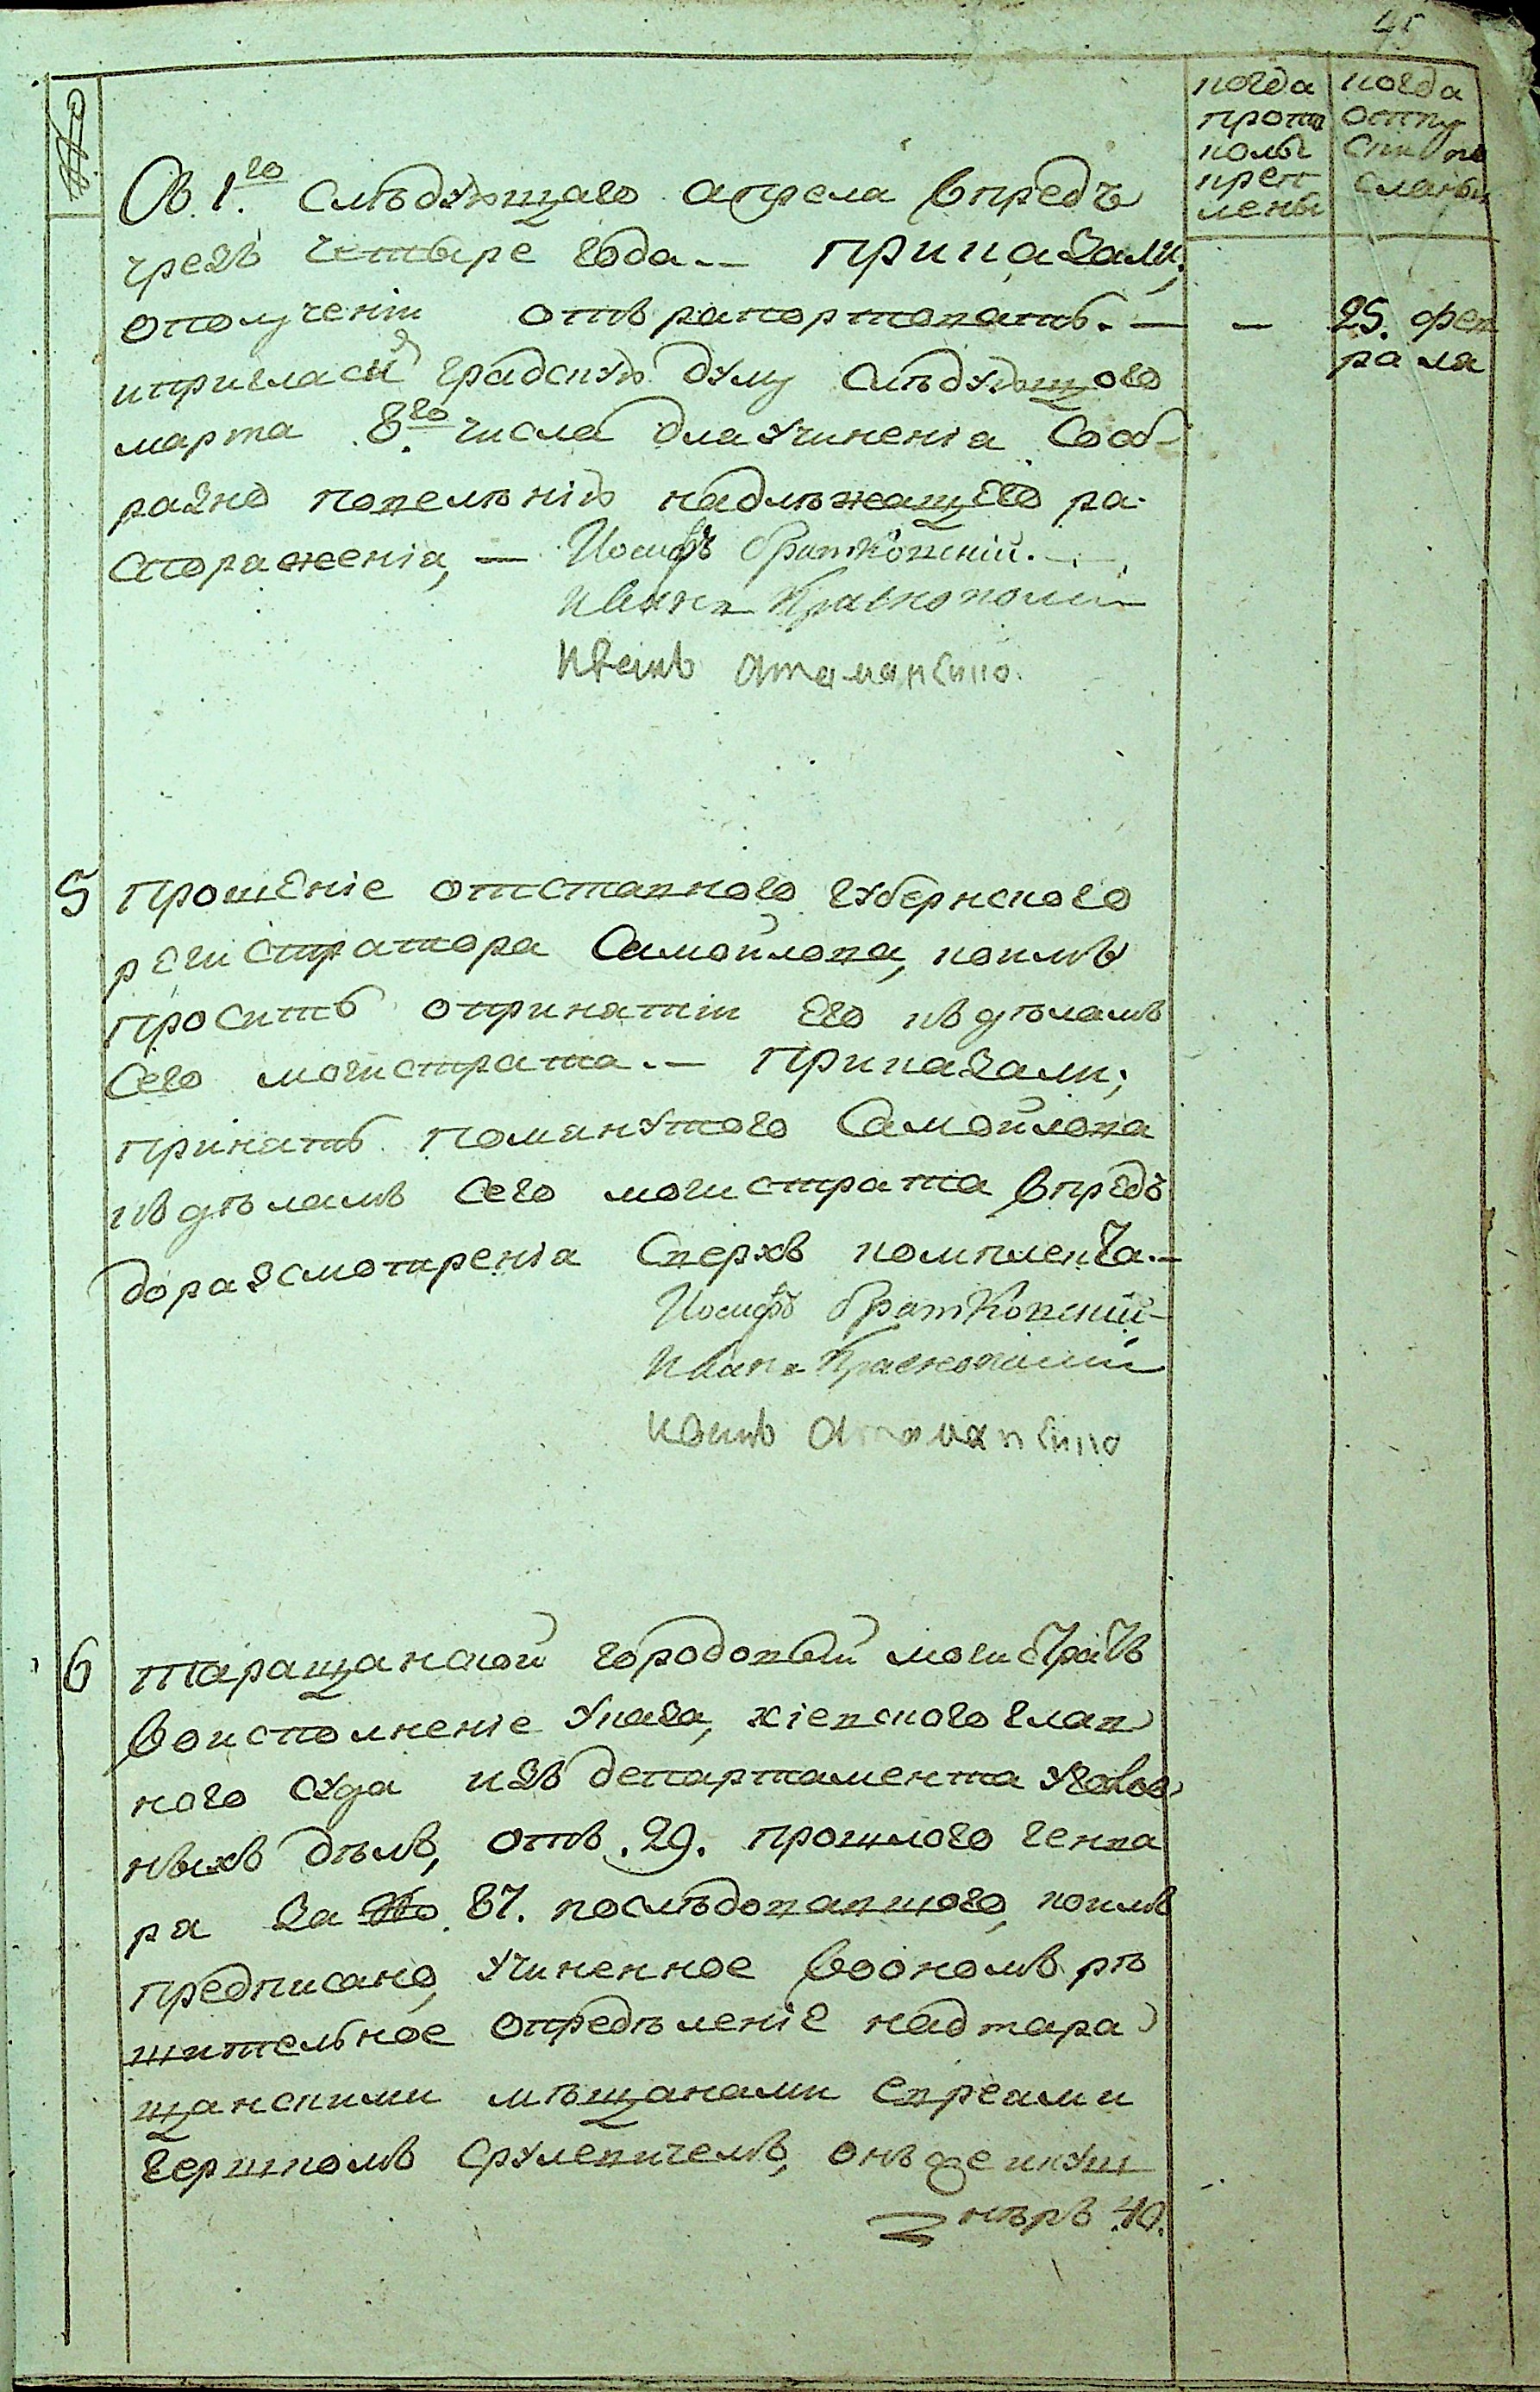 45
№
когда
прото
колы
креп
лены
когда
отпу
ски по
сланы
Съ 1.го слѣдующаго апреля впредъ
чрезъ четыре года. — Приказали;
ополученіи отърапортовать. — — 25. фев
раля
ипригласи градскую думу слѣдующого
марта 8.го числа для учиненія сооб-
разно повелѣнію надлѣжащего ра-
споряженія, — Іосифъ Братковскій. —
Иванъ
Атаманенко.
5 Прошеніе отставного губернского
регистратора Самойлова, коимъ
проситъ опринятіи его къ дѣламъ
сего могистрата. — Приказали;
принять помянутого Самойлова
къ дѣламъ сего могистрата впредъ
доразсмотренія сверхъ комплекта. —
Іосифъ Братковскій
Иванъ
Атаманенко
6 Таращанской городовый могистратъ
воисполненіе указа, кіевского глав
ного суда изъ департамента уголов
ныхъ дѣлъ, отъ .29. прошлого генва
ря за № 87. послѣдовавшого, коимъ
предписано, учиненное воономъ рѣ
шительное опредѣленіе надтара
щанскими мѣщанами евреями
Гершкомъ Срулевичемъ,
нѣръ .40.